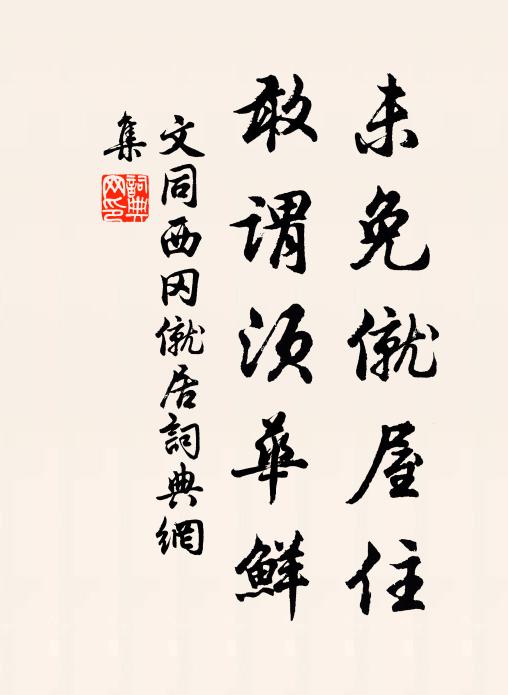 未免僦屋住
敢谓须华鲜
文同西冈僦居詞典網
集
詞典网印